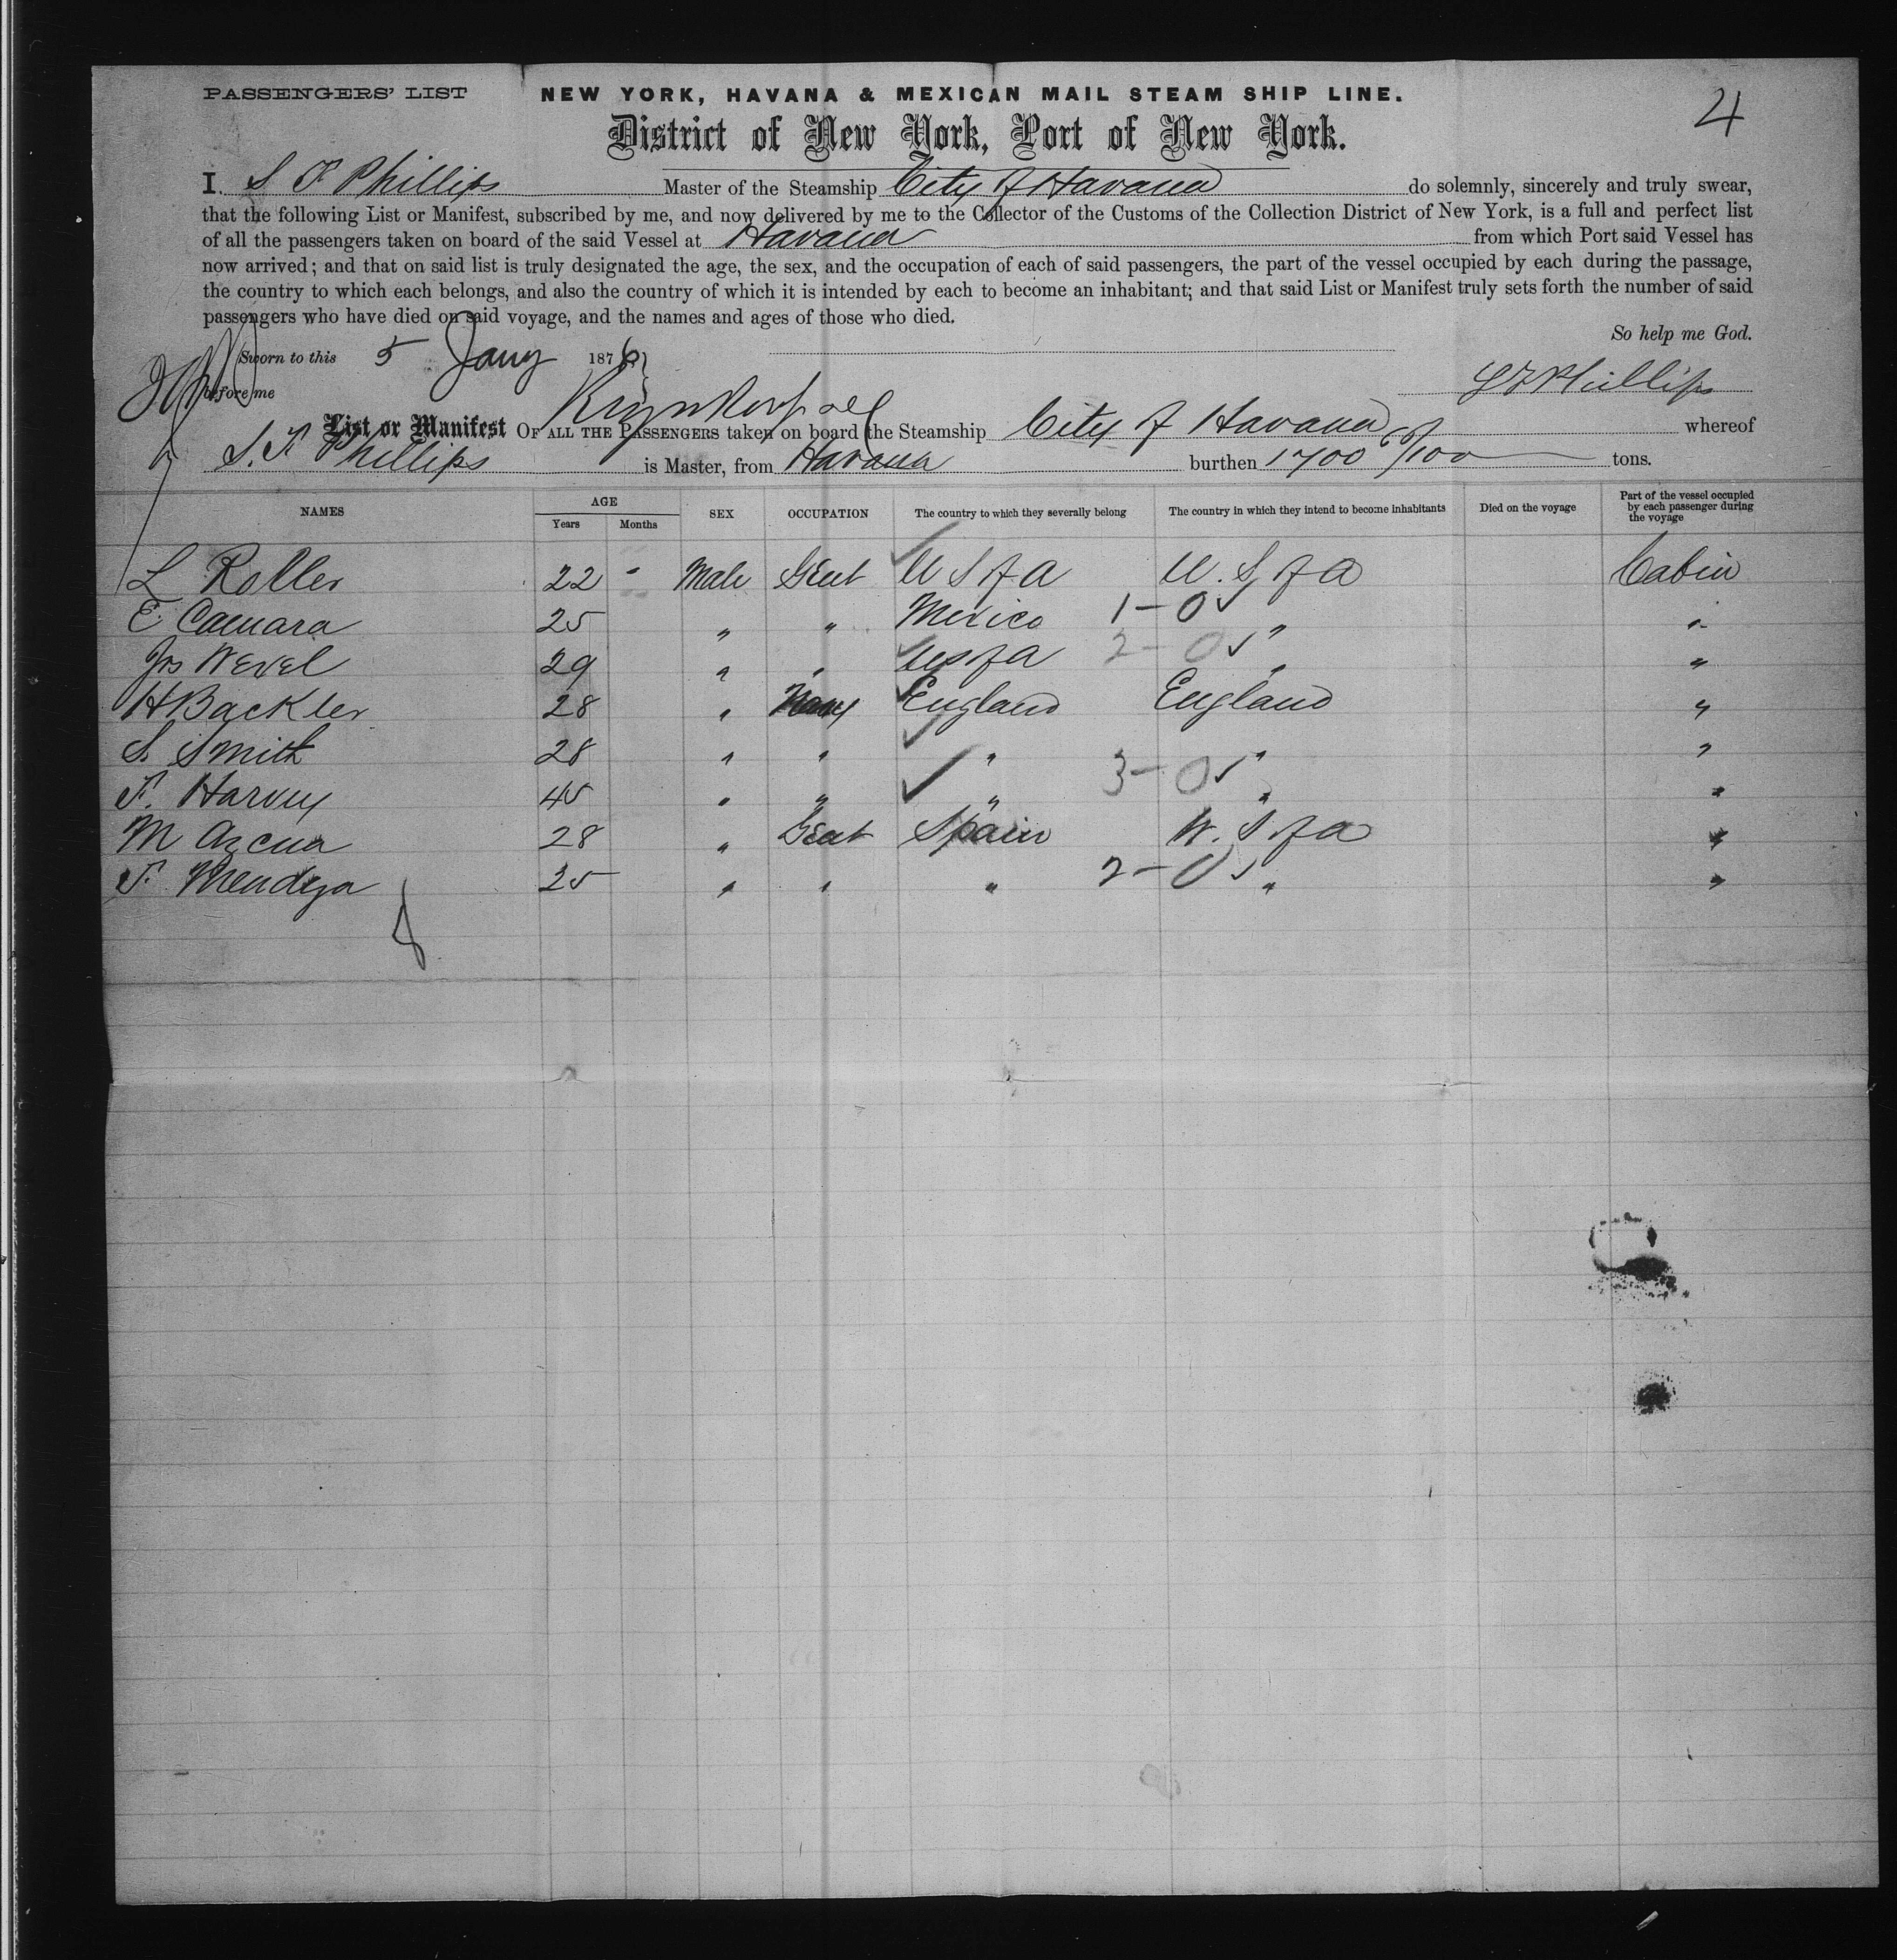 PASSENGERS' LIST NEW YORK, HAVANA & MEXICAN MAIL STEAM SHIP LINE. 4
District of New York, Port of New York.
I. S F Phillips Master of the Steamship City of Havana do solemnly, sincerely and truly swear,
that the following List or Manifest, subscribed by me, and now delivered by me to the Collector of the Customs of the Collection District of New York, is a full and perfect list
of all the passengers taken on board of the said Vessel at Havana from which Port said Vessel has
now arrived; and that on said list is truly designated the age, the sex, and the occupation of each of said passengers, the part of the vessel occupied by each during the passage,
the country to which each belongs, and also the country of which it is intended by each to become an inhabitant; and that said List or Manifest truly sets forth the number of said
passengers who have died on said voyage, and the names and ages of those who died.
So help me God.
Sworn to this 5 Jany 1876
before me S F Phillips
List or Manifest OF ALL THE PASSENGERS taken on board the Steamship City of Havana whereof
S. F. Phillips is Master, from Havana burthen 1700 /100 tons.
NAMES AGE Years Months SEX OCCUPATION The country to which they severally belong The country in which they intend to become inhabitants Died on the voyage Part of the vessel occupied by each passenger during the voyage
L Roller 22 - Male Gent U S of A U. S. of A Cabin
E. Camara 25 " " Mexico 1-0 ✓ " "
Jos Wexel 29 " " US of A 2-0 ✓ " "
H Backler 28 " Navy England England "
S. Smith 28 " " " " "
F. Harvey 45 " " " 3-0 ✓ " "
M Azcua 28 " Gent Spain U. S of A "
F. Mendiza 25 " " " 2-0 ✓ " "
8